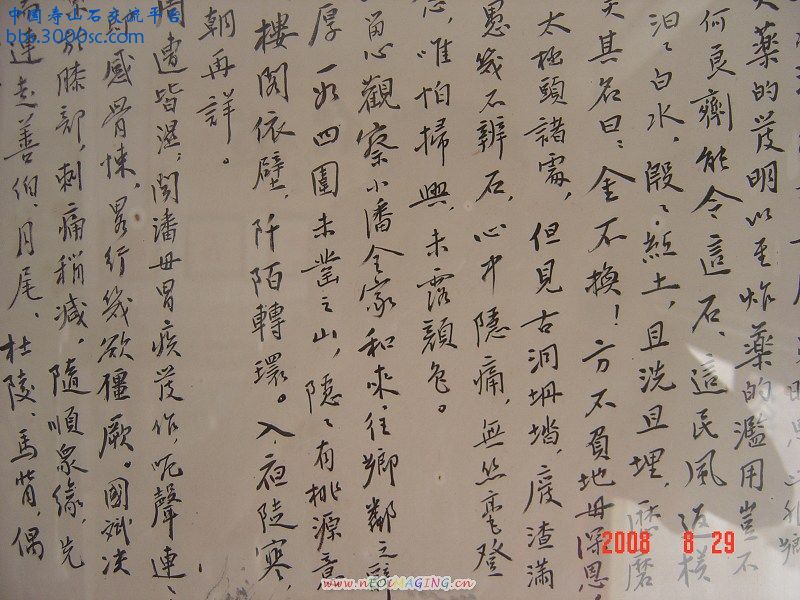 中国寿山石交流平台
bbs.3000sc.com
火藥的發明以至炸藥的濫用豈不
何良劑能令這石、這民風返樸
汩汩白水,殷殷紅土,且洗且埋,磨
美其名曰:金不換!方不負地母深恩,
太極頭諸處,但見古洞坍塌,廢渣滿
愚幾石辨石,心中隱痛,無然毫登
,唯怕掃興,未露顏色。
留心觀察小潘全家和來往鄉鄰之
厚一如四圍未鑿之山,隱隱有桃源意
樓閣依壁,阡陌轉環。入夜陡寒,
朝再詳。
周遭皆濕,聞潘母胃疾發作,呃聲連連、
感骨悚,畧行幾欲僵厥。國斌決
於膝部,刺痛稍減,隨順衆緣,先
連走善伯、月尾、杜陵、馬背,偶
2008 8 29
www.nEOiMAGING.cn